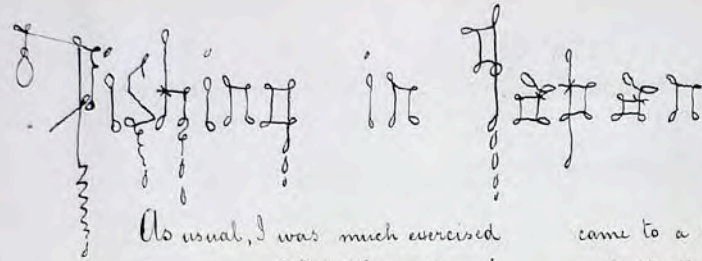 Fishing in Japan
As usual, I was much exercised came to a